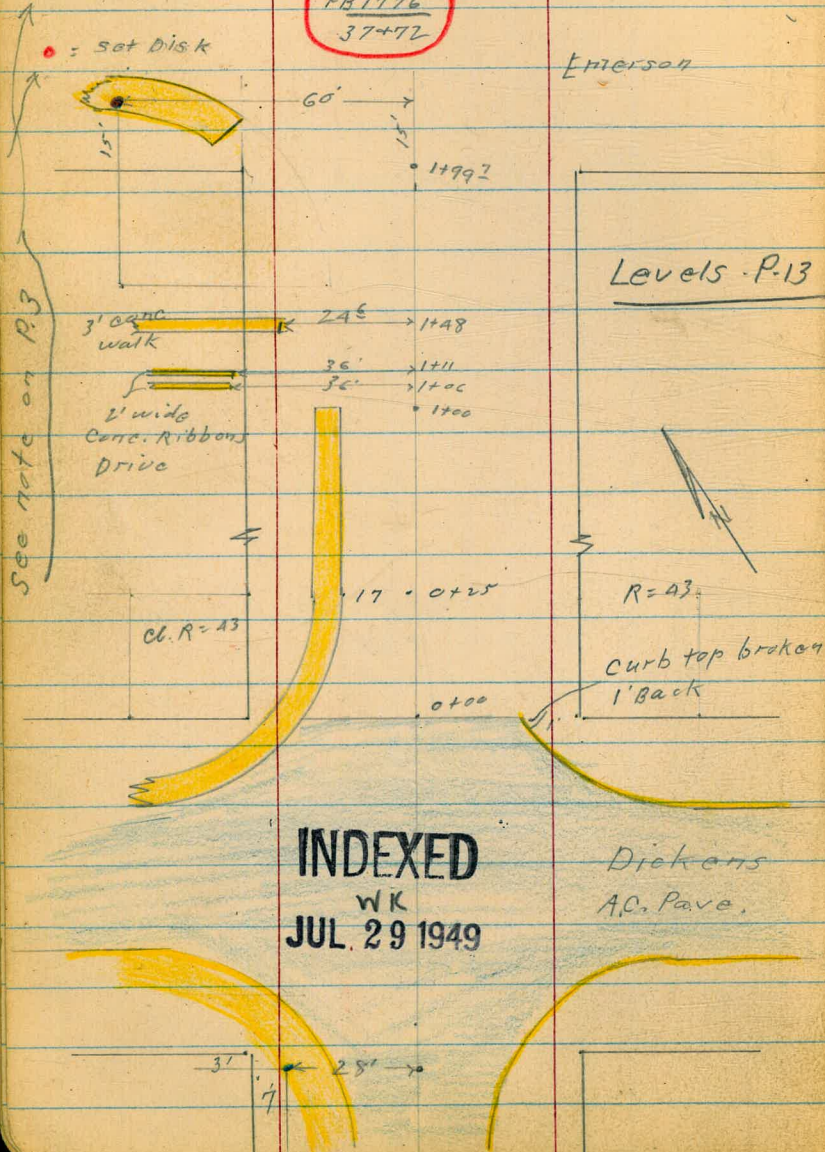 FB 1776
37+72
= Set Disk
Emerson
60'
15'
15'
1+99 7
Levels - P.13
3' conc
walk
24 6
1+48
36'
1+11
36'
1+06
1+00
2' wide
Conc. Ribbons
Drive
See note on P.3
N
17
0+25
R=43
Cb. R=43
Curb top broken
1' Back
0+00
1'
INDEXED
WK
JUL. 29 1949
Dickens
A.C. Pave.
3'
28'
7'